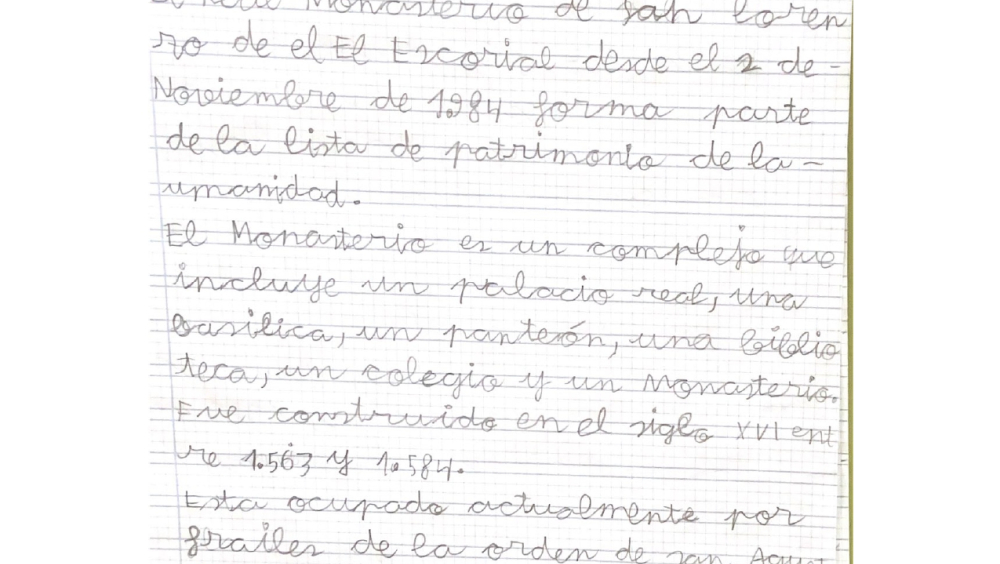 El Real Monasterio de San Loren
zo de el El Escorial desde el 2 de-
Noviembre de 1.984 forma parte
de la lista de patrimonio de la-
umanidad.
El Monasterio es un complejo que
incluye un palacio real, una
basilica, un panteón, una biblio
teca, un colegio y un Monasterio.
Fue construido en el siglo XVI ent
re 1.563 y 1.584.
Esta ocupado actualmente por
frailes de la orden de san Agust